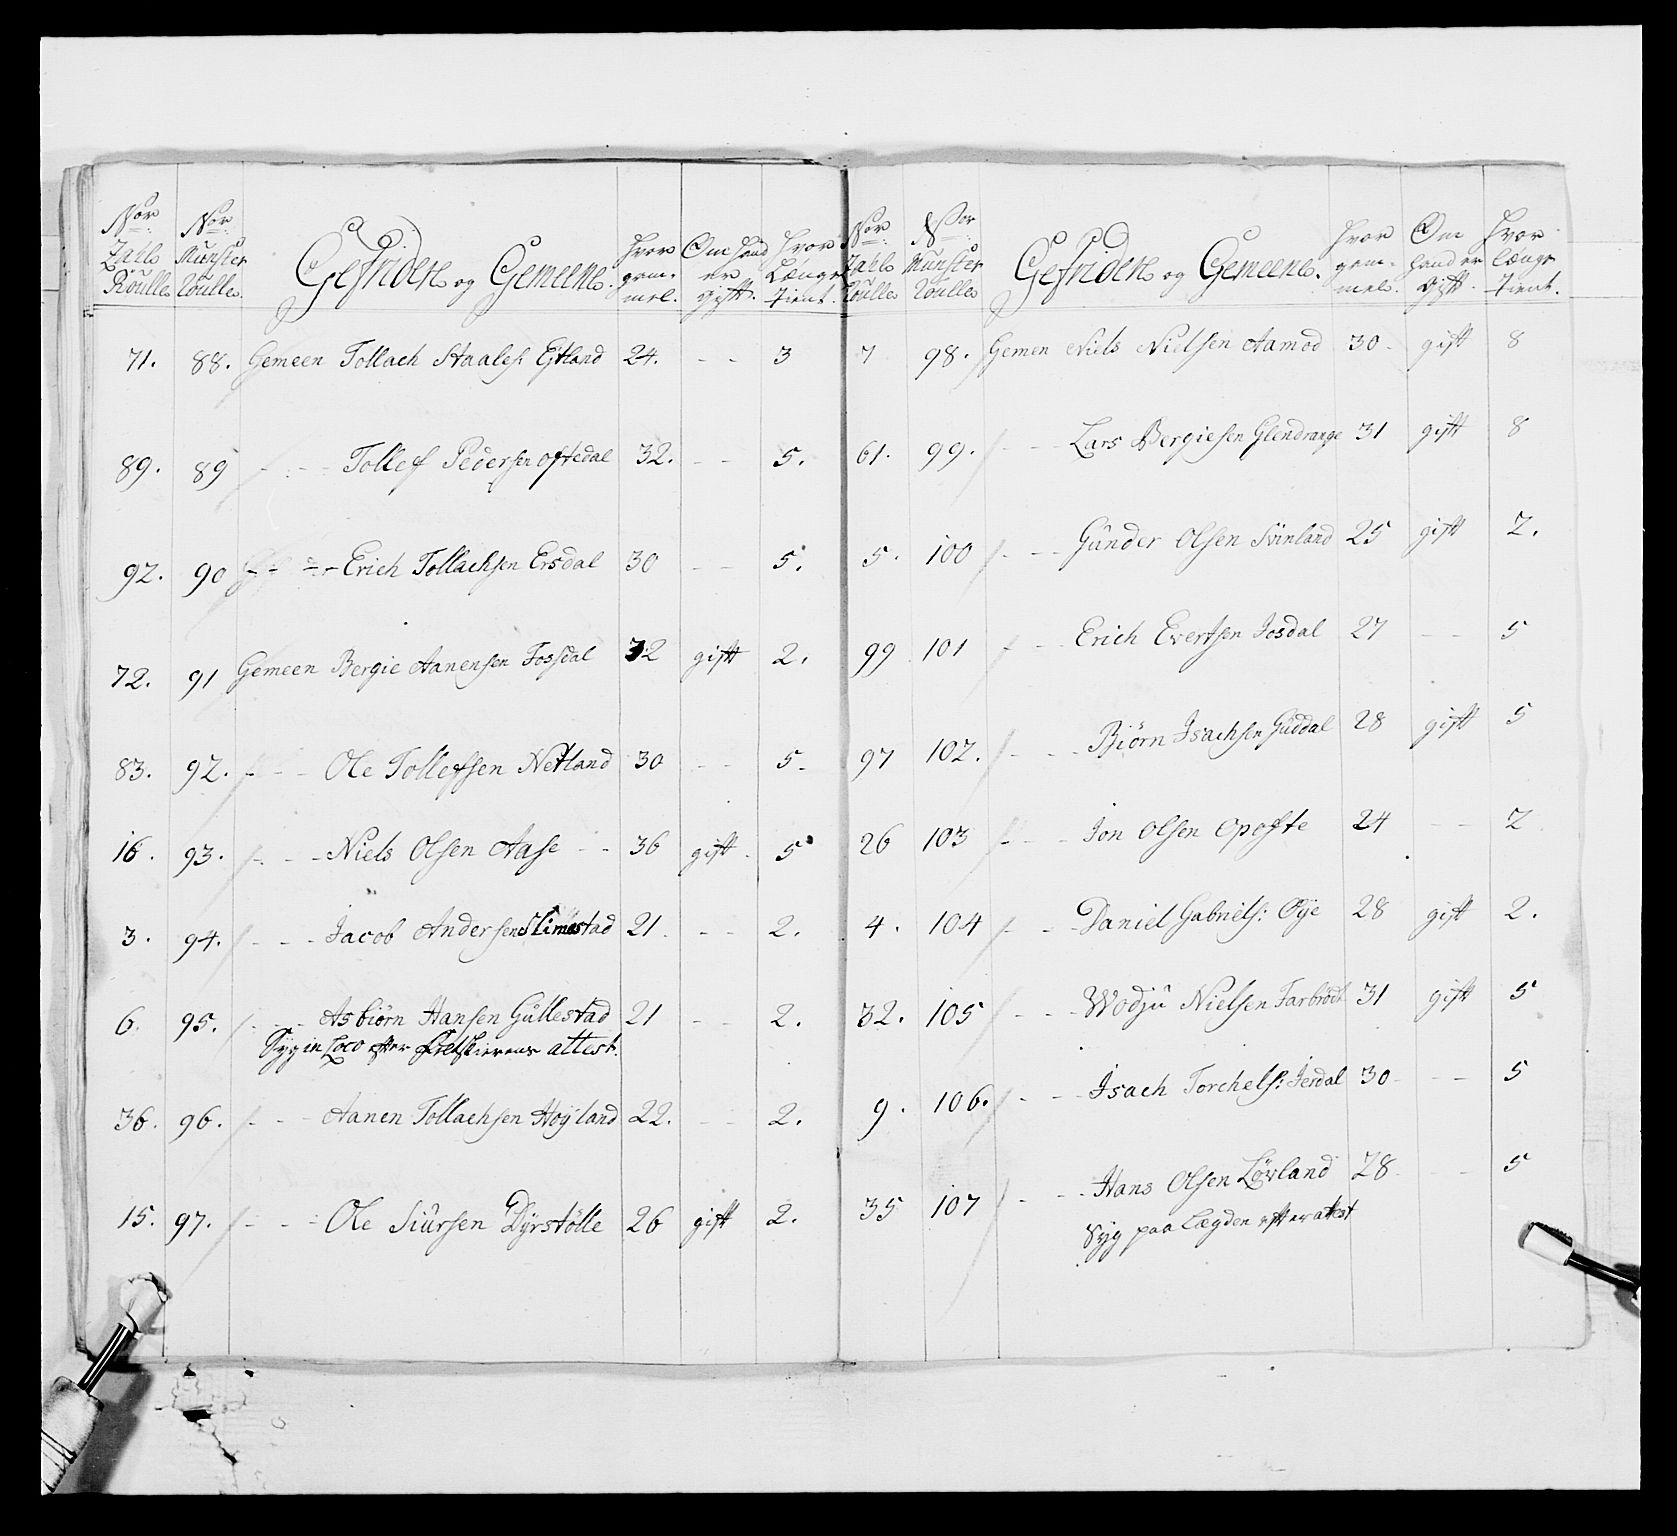 Nor Zahl Roulle | Nor Munster Roulle | Gefriden og Gemeene. | Hvor gam- mel. | Om Hand er gift. | Hvor Længe Tient.
71. 88. Gemeen Tollach Staalesen Eftland 24. - - 3
89. 89 - - - Tollef Pedersen oftedal 32. - - 5.
92. 90 - - - Erich Tollachsen Ersdal 30 - - 5.
72. 91 Gemeen Bergie Aanensen Fossdal 32 gift 2.
83. 92. - - - Ole Tollefsen Netland 30 - - 5.
16. 93. - - - Niels Olsen Aase - - 36 gift 5
3. 94. - - - Jacob Andersen Slimestad 21 - - 2.
6. 95. - - - Asbiörn Hansen Gullestad 21 - - 2.
Syg in Loco efter attest.
36. 96. - - - Aanen Tollachsen Hoyland 22. - - 2.
15. 97. - - - Ole Siursen Dyrstölle 26 gift 2.
Nor Zahl Roulle | Nor Munster Roulle | Gefriden og Gemeene. | Hvor gam- mel. | Om Hand er Gift. | Hvor Længe Tient.
7 98. Gemen Niels Nielsen Aamod 30 - gift 8
61. 99. - - - Lars Bergiesen Glendrange 31 gift 8
5. 100 - - - Gunder Olsen Svinland 25 gift 2.
99 101 - - - Erich Evertsen Josdal 27 - - 5
97 102. - - - Biörn Isachsen Guddal 28 gift 5
26 103 - - - Jon Olsen Opofte 24 - - 2
4. 104 - - - Daniel Gabriels: Oye 28 gift 2.
32. 105 - - - Wodju Nielsen Farbrodt 31 gift 5
9. 106. - - - Isach Torchels: Jerdal 30 - - 5
35 107 - - - Hans Olsen Lövland 28 - - 5
Syg paa Lægden efter attest